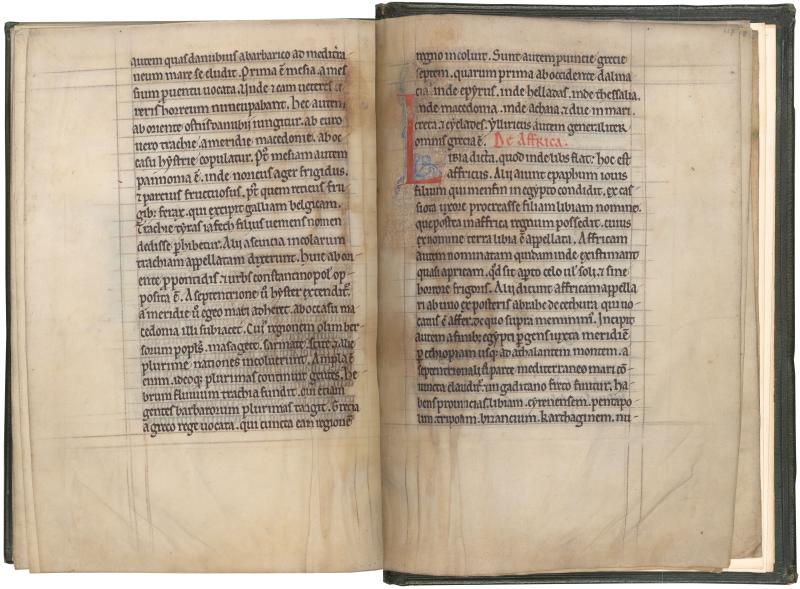 autem quas danubius a barbarico ad meditra
neum mare secludit. Prima ē mesia. a mes
sium prouentu uocata. Unde ⁊ eam ueteres ce
reris horreum nuncupabant. Hec autem
ab oriente ostiis danubii iungitur. ab euro
uero trachie. a meridie macedonie. ab oc
casu hystrie copulatur. Pꝰ mesiam autem
pannonia ē. inde noricus ager frigidus.
⁊ parcius fructuosus. pꝰt quem reticus fru
gibꝰ ferax. qui excipit galliam belgicam.
Trachie tyras iafech filius ueniens nomen
dedisse ꝑhibetur. Alii a seuicia incolarum
trachiam appellatam dixerunt. Huic ab ori
ente ꝓpontidis ⁊ urbs constantinopolꝰ op-
posita ē. A septentrione ū hyster extenditꝰ.
a meridie ū egeo mari adheret. ab occasu ma
cedonia illi subiacet. Cuiꝰ regionem olim bes
sorum popłs. masagete. sarmate. scite. ⁊ alie
plurime nationes incoluerunt. Ampla ē
enim. ideoqꝫ plurimas continuit gentes. He
brum fluuium trachia fundit. qui etiam
gentes barbarorum plurimas tangit. Grecia
a greco rege uocata. qui cuncta eam regionē
regno incoluit. Sunt autem ꝓuincie grecie
septem. quarum prima ab occidente dalma
cia. inde epyrus. inde helladas. inde thessalia.
inde macedonia. inde achaia. ⁊ due in mari.
creta ⁊ cyclades. Ylliricus autem generaliter
omnis grecia ē. De Affrica.
Libia dicta. quod inde libs flat. hoc est
affricus. Alii aiunt epaphum iouis
filium qui menfin in egypto condidit. ex cas
siota uxore procreasse filiam libiam nomine.
que postea in affrica regnum possedit. cuius
ex nomine terra libia ē appellata. Affricam
autem nominatam quidam inde existimant
quasi apricam. qd sit apto celo ul̕ soli. ⁊ sine
horrore frigoris. Alii dicunt affricam appella
ri ab uno ex posteris abrahe de cethura qui uo
catus ē affer. de quo supra meminimꝰ. Incipit
autem a finibꝰ egypti ꝑgens iuxta meridiē
ꝑ ethiopiam usqꝫ ad athalantem montem. a
septentrionali ū parte mediterraneo mari cō
iuncta clauditꝰ. in gaditano freto finitur. ha
bens prouincias. libiam. cyrenensem. pentapo
lim. tripolim. bizancium. karthaginem. nu-